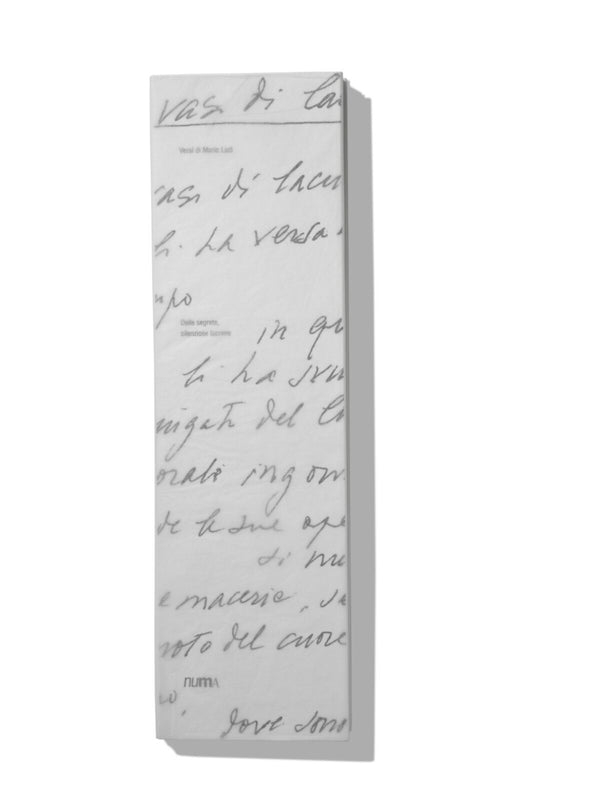 vasi di la
Versi di Mario Luzi
vasi di lacu
li ha versa
mpo
Dalle segrete,
silenziose lacrime
in qu
li ha svu
nigati del l
orato ingom
de le sue ope
si mu
e macerie, s
noto del cuore
numA
o,
dove sono